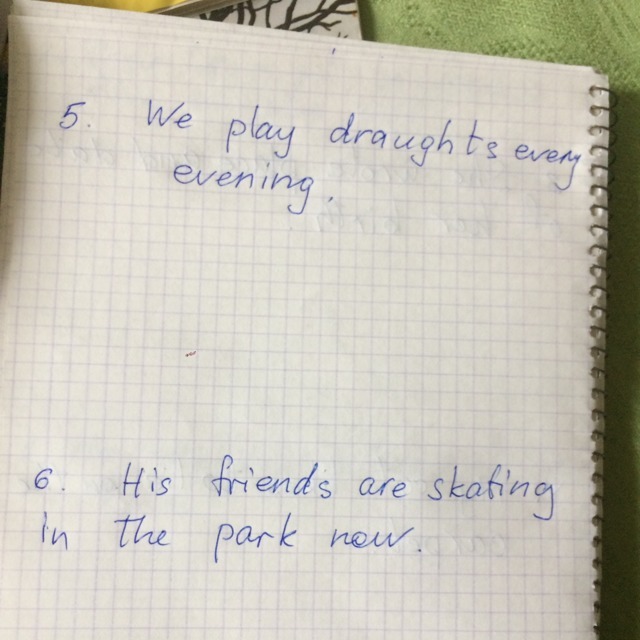 5. We play draughts every
evening.
6. His friends are skating
in the park now.